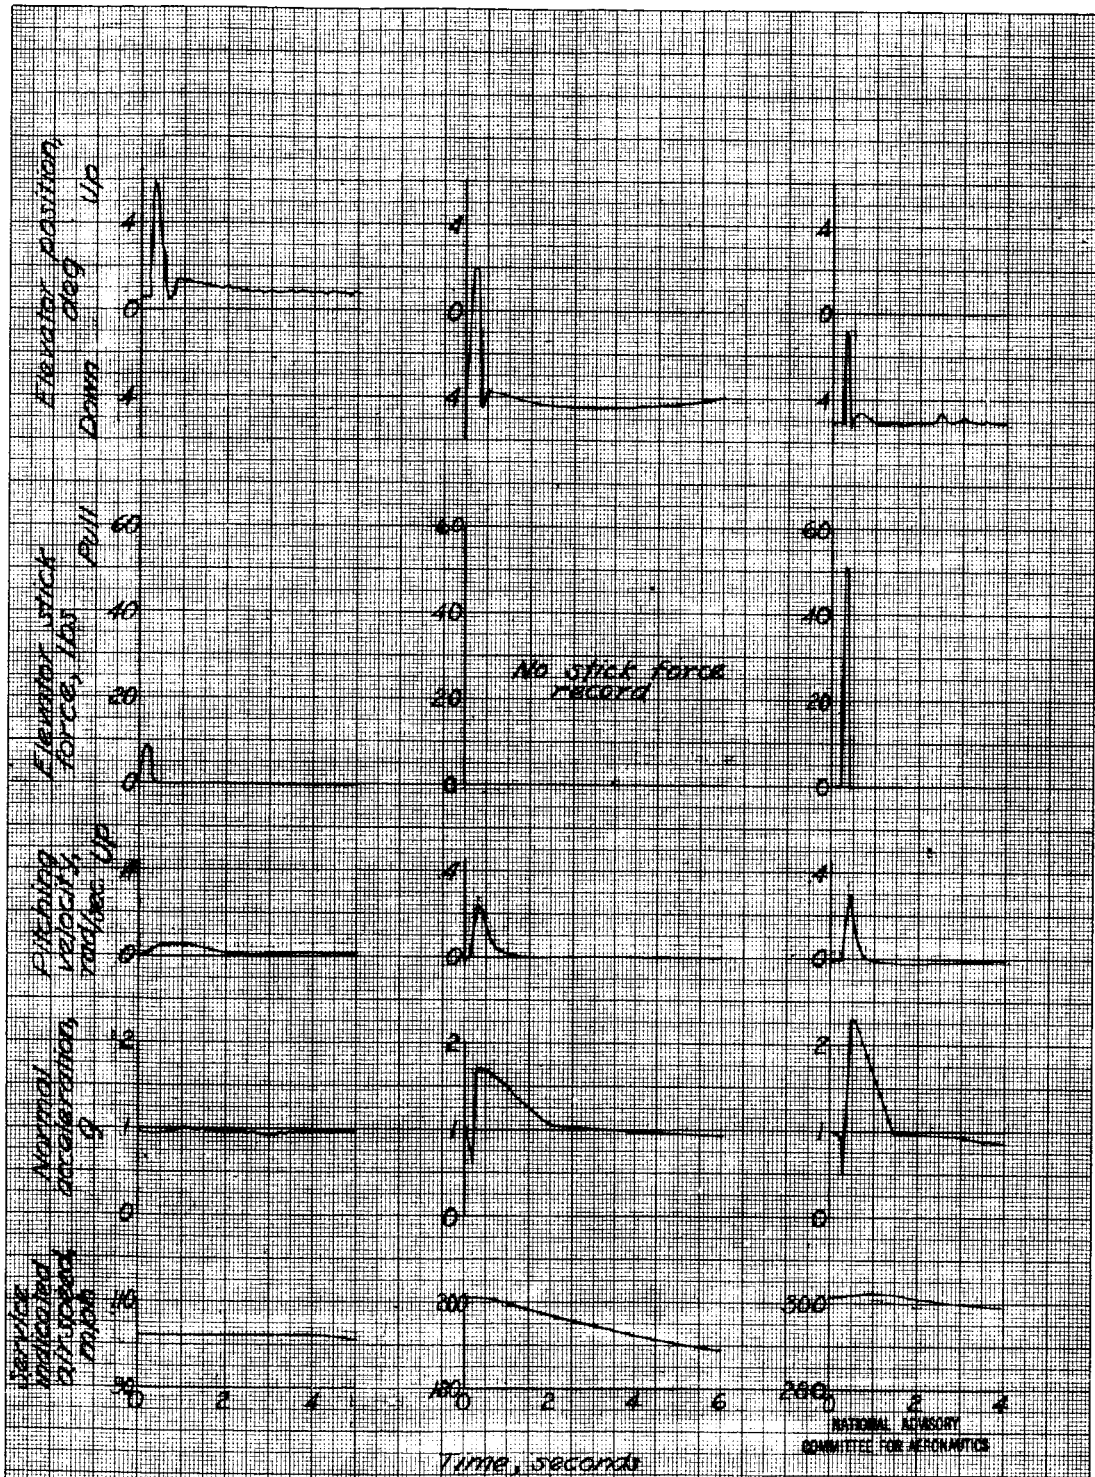 Elevator position,
deg
Down Up
4
0
4
4
0
4
4
0
4
Elevator stick
force, lbs
Pull
60
40
20
0
60
40
20
0
60
40
20
0
No stick force
record
Pitching
velocity,
rad/sec. Up
0
.4
0
.4
0
Normal
acceleration,
g
2
1
0
2
1
0
2
1
0
Service
indicated
airspeed,
mph
110
90
200
180
300
280
0 2 4
0 2 4 6
0 2 4
Time, seconds
NATIONAL ADVISORY
COMMITTEE FOR AERONAUTICS